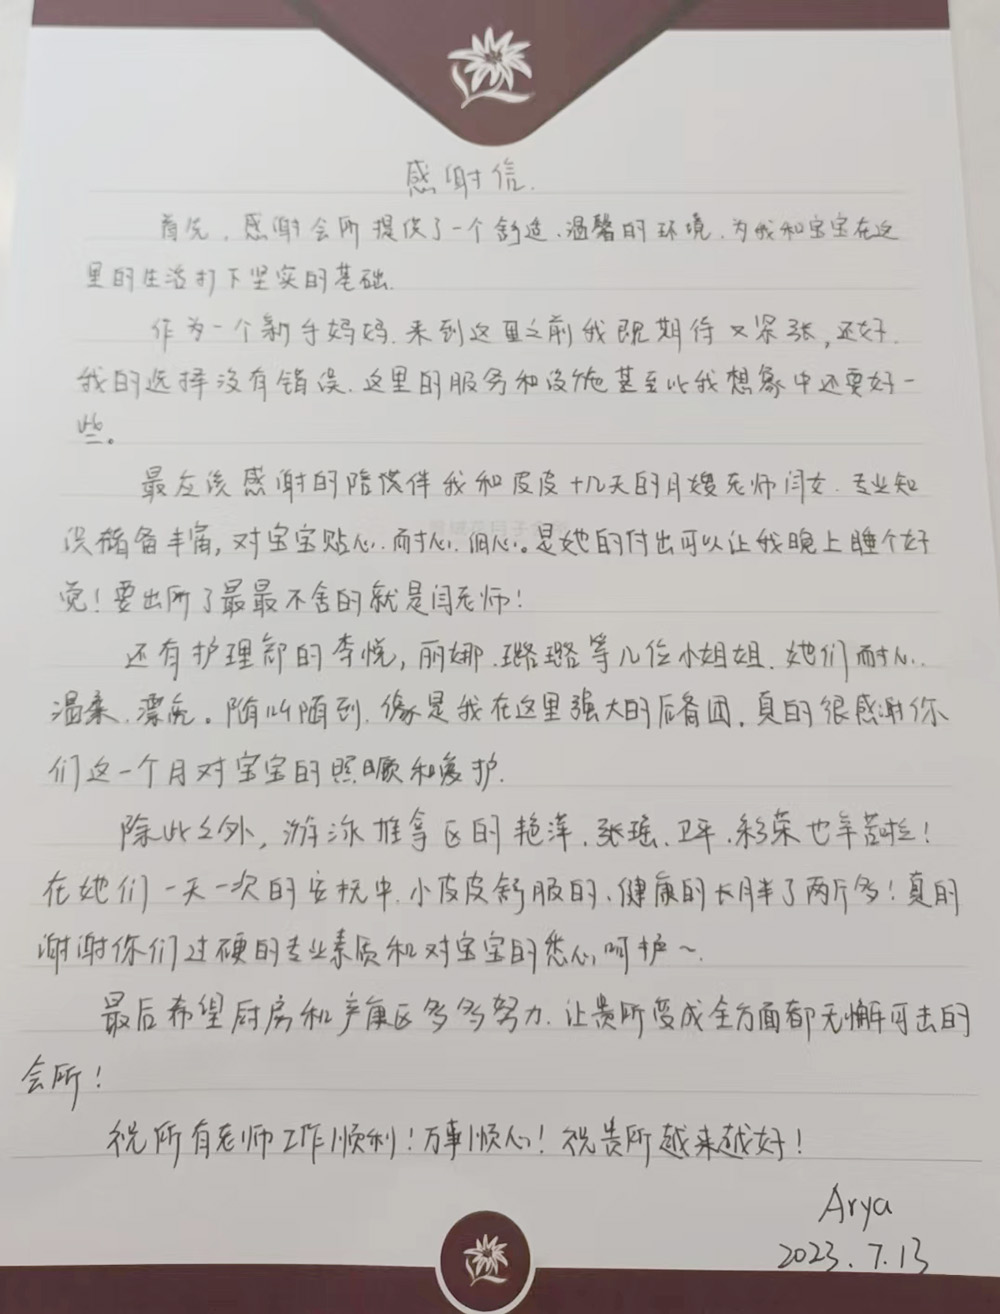 感谢信.
首先,感谢会所提供了一个舒适、温馨的环境,为我和宝宝在这
里的生活打下坚实的基础.
作为一个新手妈妈.来到这里之前我既期待又紧张,还好.
我的选择没有错误.这里的服务和设施甚至比我想象中还要好一
些。
最应该感谢的陪伴我和皮皮十几天的月嫂老师闫女.专业知
识储备丰富,对宝宝贴心.耐心.细心。是她的付出可以让我晚上睡个好
觉!要出所了最最不舍的就是闫老师!
还有护理部的李悦,丽娜.璐璐等几位小姐姐.她们耐心.
温柔.漂亮。随叫随到.像是我在这里强大的后备团.真的很感谢你
们这一个月对宝宝的照顾和爱护.
除此之外,游泳推拿区的艳萍.张瑶.卫平.彩荣也辛苦啦!
在她们一天一次的安抚中.小皮皮舒服的、健康的长胖了两斤多!真的
谢谢你们过硬的专业素质和对宝宝的悉心呵护~.
最后希望厨房和产康区多多努力.让贵所变成全方面都无懈可击的
会所!
祝所有老师工作顺利!万事顺心!祝贵所越来越好!
Arya
2023.7.13